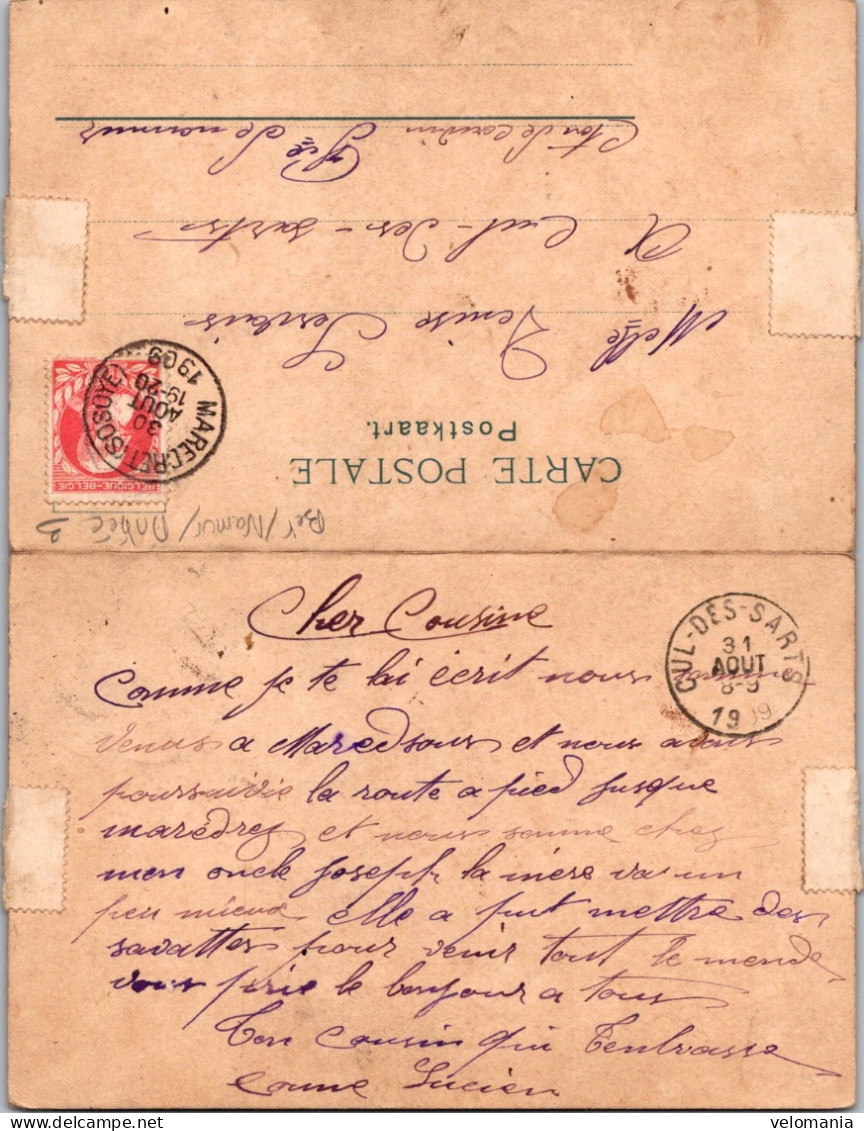 CARTE POSTALE
Postkaart.
Melle Denise Servais
A Cul-des-sarts
Cton de couvin Pce de namur
BELGIQUE-BELGIE
MAREDRET (SOSOYE)
30
AOUT
19-20
1909
Bel/Namur/
Cher Cousine
Comme je te lai écrit nous somme
venus a Maredsous et nous avons
poursuivie la route a pied jusque
marédrez et nous somme chez
mon oncle joseph la mère va un
peu mieux elle a put mettre des
savattes pour venir tout le monde
vous prie le bonjour a tous
Ton cousin qui t'enbrasse
Lucien
CUL-DES-SARTS
31
AOUT
8-9
1909
velomania